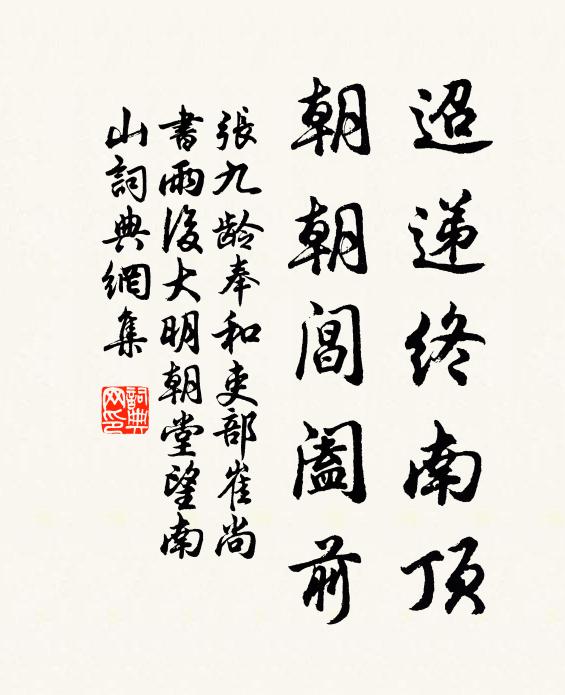 迢递终南顶
朝朝阊阖前
張九龄奉和吏部崔尚
書雨後大明朝堂望南
山詞典網集
詞典
网印